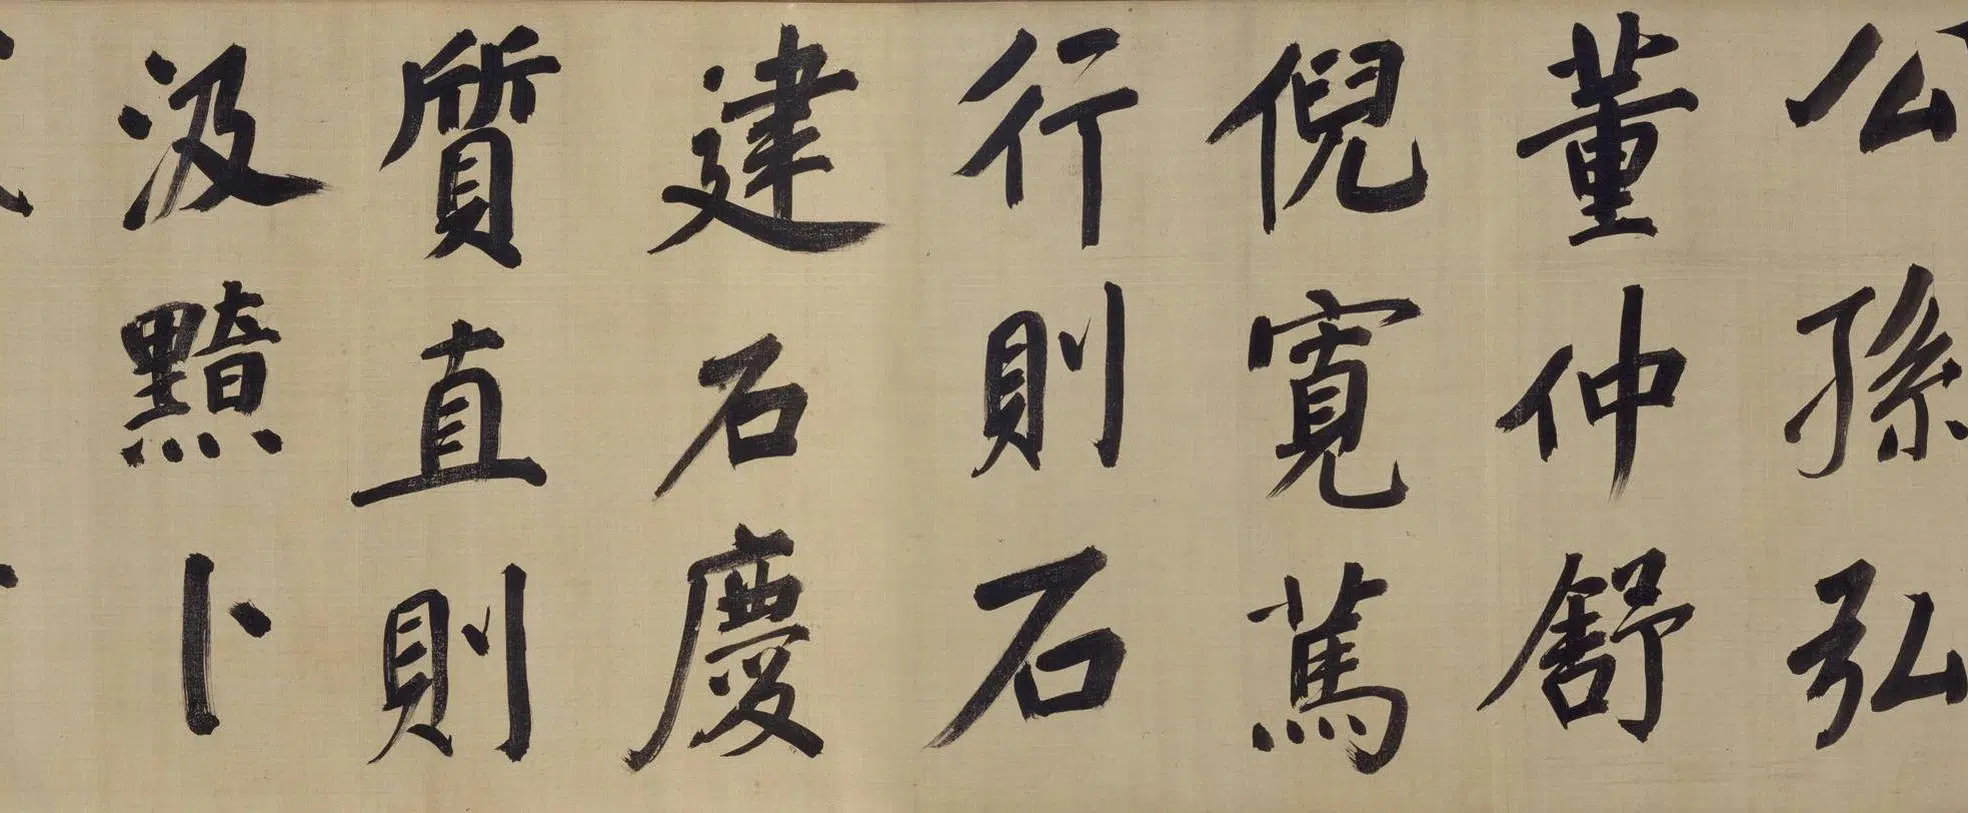 公孫弘
董仲舒
倪寬篤
行則石
建石慶
質直則
汲黯卜